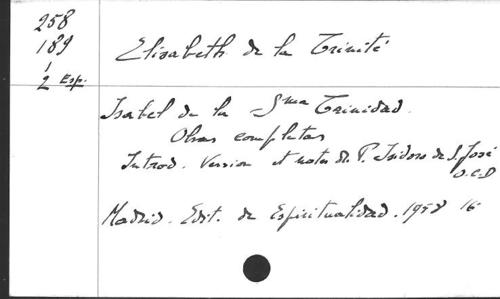 258
189
1
2 Esp.
Elisabeth de la Trinité
Isabel de la Sma Trinidad.
Obras completas
Introd. Version et notas de P. Isidoro de S. José
O.C.D
Madrid. Edit. de Espiritualidad. 1958 16